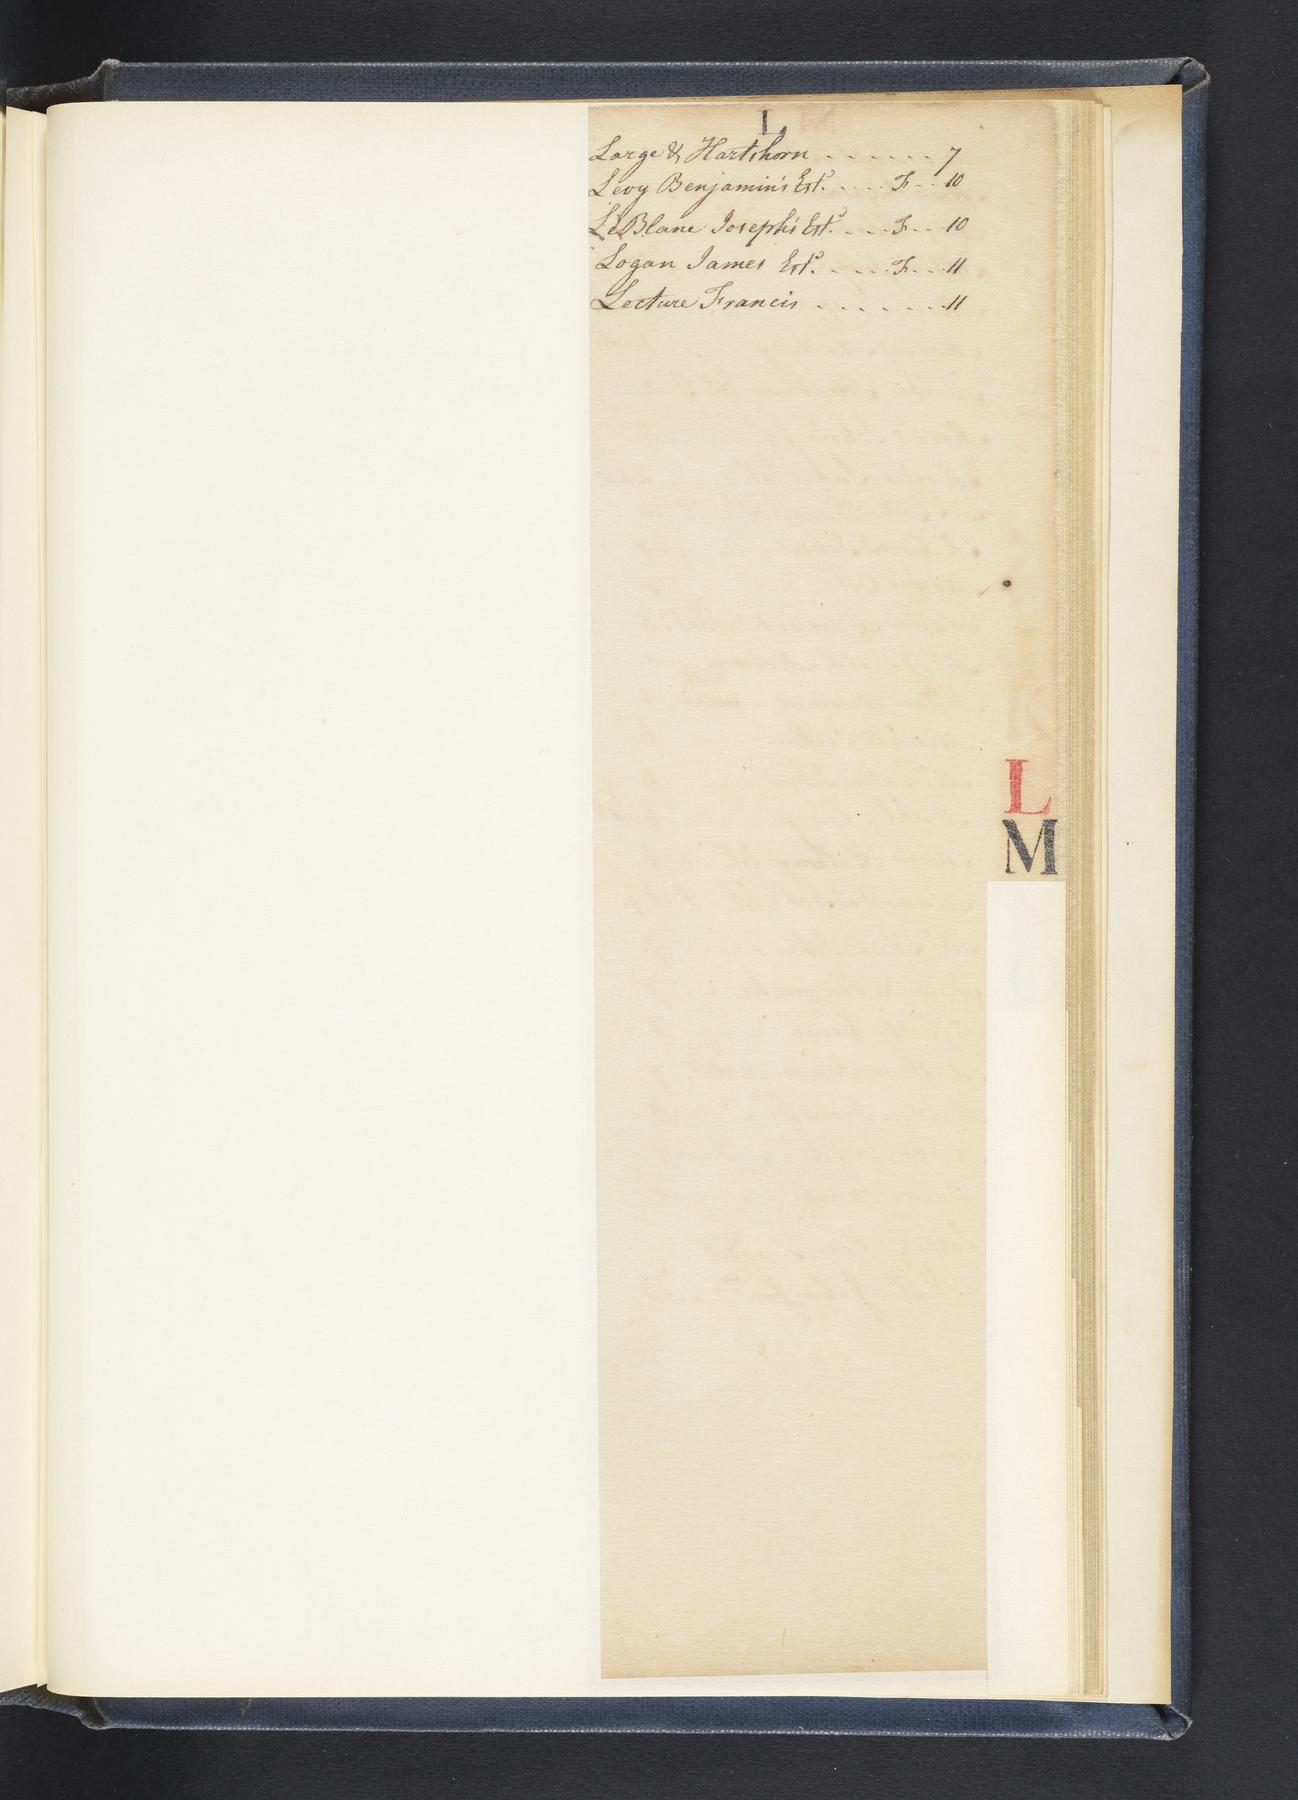 L
Large & Hartshorn . . . . . . 7
Levy Benjamin's Est.ᵉ . . . . F . . 10
LeBlanc Joseph's Est.ᵉ . . . F . . . 10
Logan James Est.ᵉ . . . . F . . . 11
Lecture Francis . . . . . . . 11
L
M